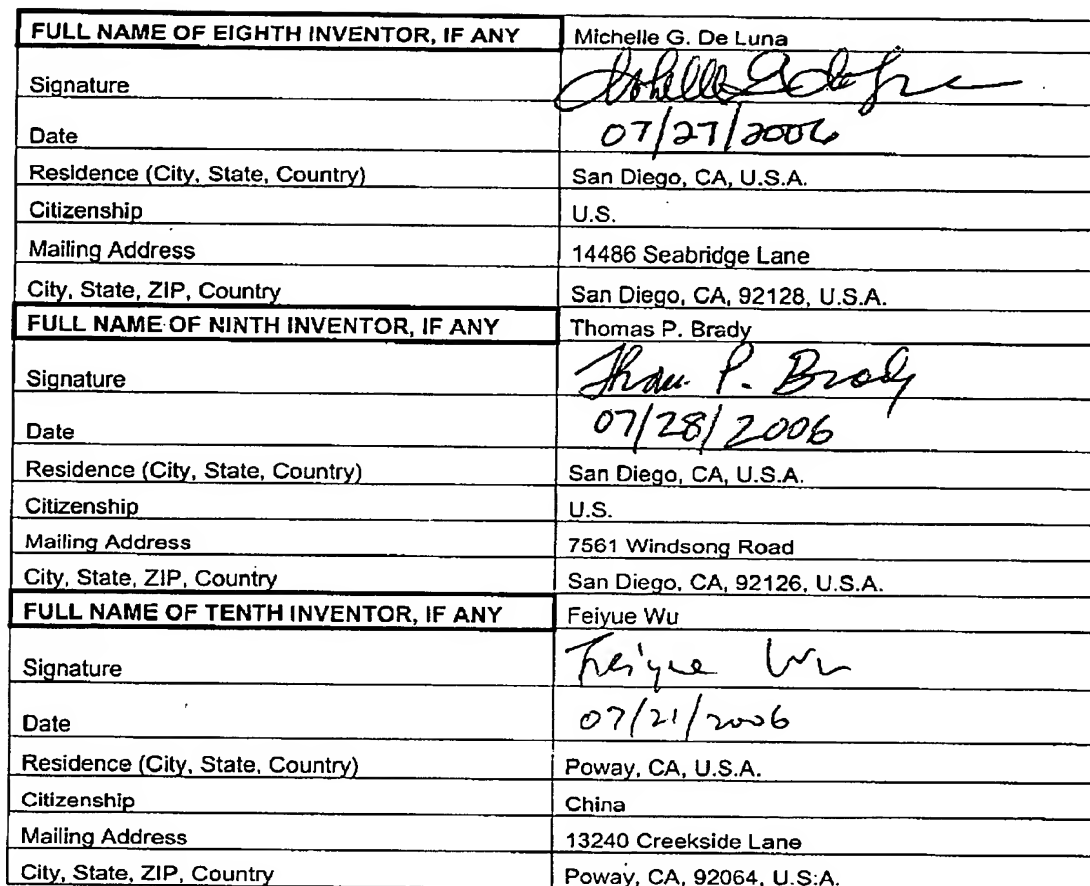 FULL NAME OF EIGHTH INVENTOR, IF ANY Michelle G. De Luna
Signature
Date 07/27/2006
Residence (City, State, Country) San Diego, CA, U.S.A.
Citizenship U.S.
Mailing Address 14486 Seabridge Lane
City, State, ZIP, Country San Diego, CA, 92128, U.S.A.
FULL NAME OF NINTH INVENTOR, IF ANY Thomas P. Brady
Signature P. Brady
Date 07/28/2006
Residence (City, State, Country) San Diego, CA, U.S.A.
Citizenship U.S.
Mailing Address 7561 Windsong Road
City, State, ZIP, Country San Diego, CA, 92126, U.S.A.
FULL NAME OF TENTH INVENTOR, IF ANY Feiyue Wu
Signature Feiyue Wu
Date 07/21/2006
Residence (City, State, Country) Poway, CA, U.S.A.
Citizenship China
Mailing Address 13240 Creekside Lane
City, State, ZIP, Country Poway, CA, 92064, U.S.A.